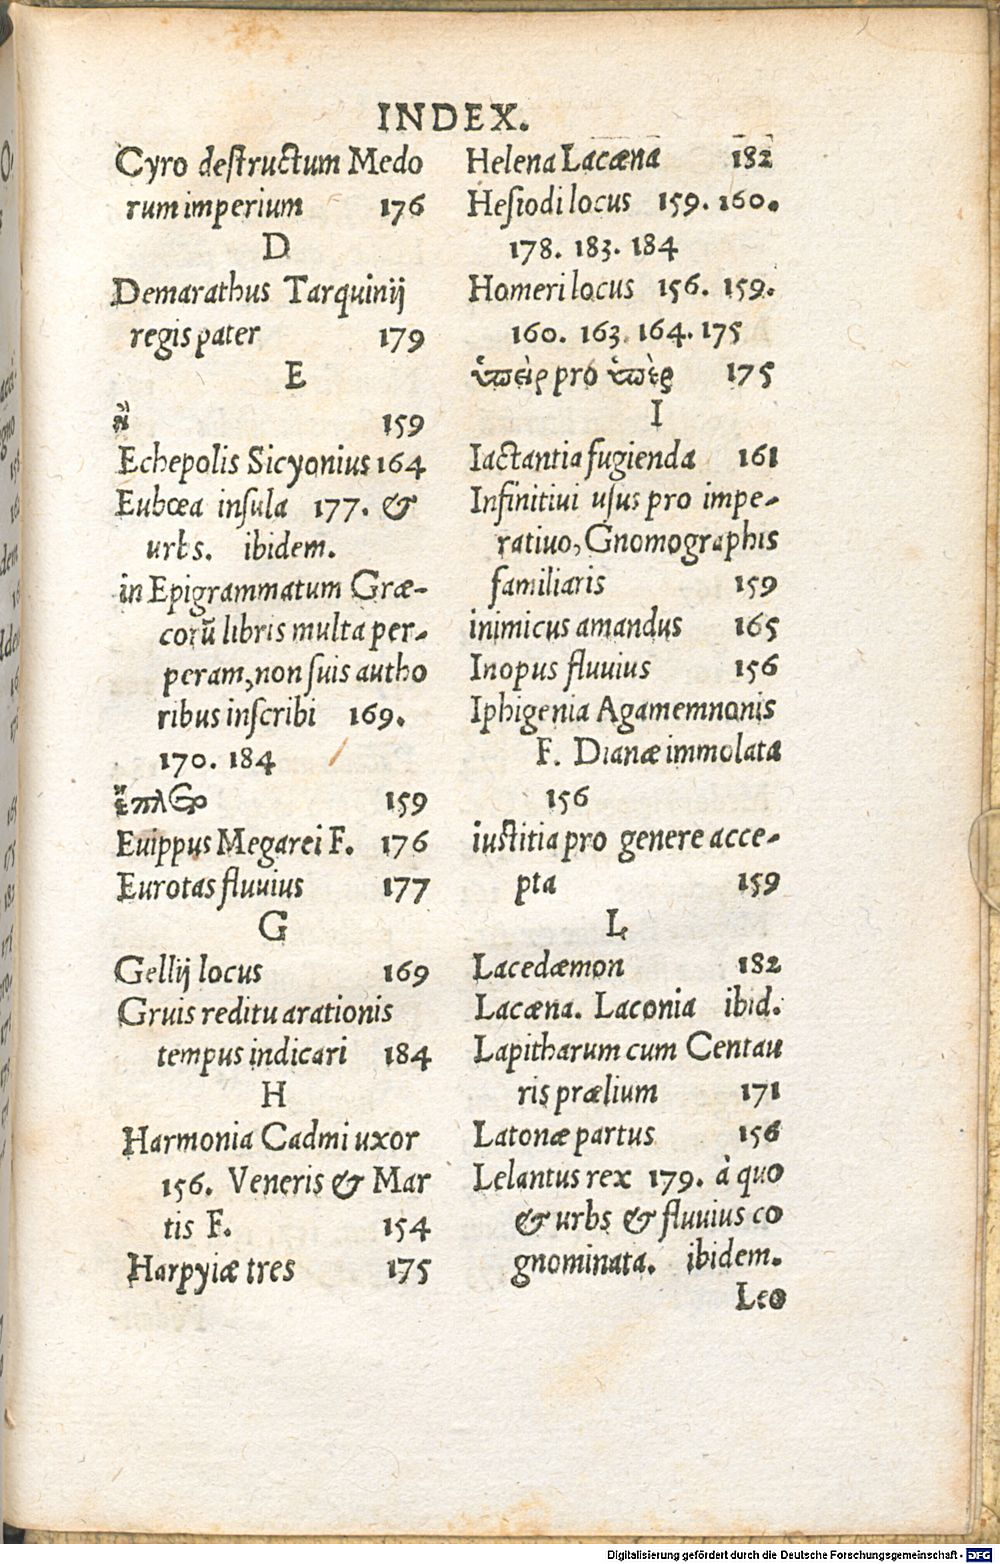 INDEX.
Cyro destructum Medo
rum imperium 176
D
Demarathus Tarquinij
regis pater 179
E
159
Echepolis Sicyonius 164
Eubœa insula 177. &
urbs. ibidem.
in Epigrammatum Græ-
corũ libris multa per-
peram, non suis autho
ribus inscribi 169.
170. 184
ἔπλεο 159
Euippus Megarei F. 176
Eurotas fluuius 177
G
Gellij locus 169
Gruis reditu arationis
tempus indicari 184
H
Harmonia Cadmi uxor
156. Veneris & Mar
tis F. 154
Harpyiæ tres 175
Helena Lacæna 182
Hesiodi locus 159. 160.
178. 183. 184
Homeri locus 156. 159.
160. 163. 164. 175
ὑπεὶρ pro ὑπὲρ 175
I
Iactantia fugienda 161
Infinitiui usus pro impe-
ratiuo, Gnomographis
familiaris 159
inimicus amandus 165
Inopus fluuius 156
Iphigenia Agamemnonis
F. Dianæ immolata
156
iustitia pro genere acce-
pta 159
L
Lacedæmon 182
Lacæna. Laconia ibid.
Lapitharum cum Centau
ris prælium 171
Latonæ partus 156
Lelantus rex 179. à quo
& urbs & fluuius co
gnominata. ibidem.
Leo
Digitalisierung gefördert durch die Deutsche Forschungsgemeinschaft - DFG